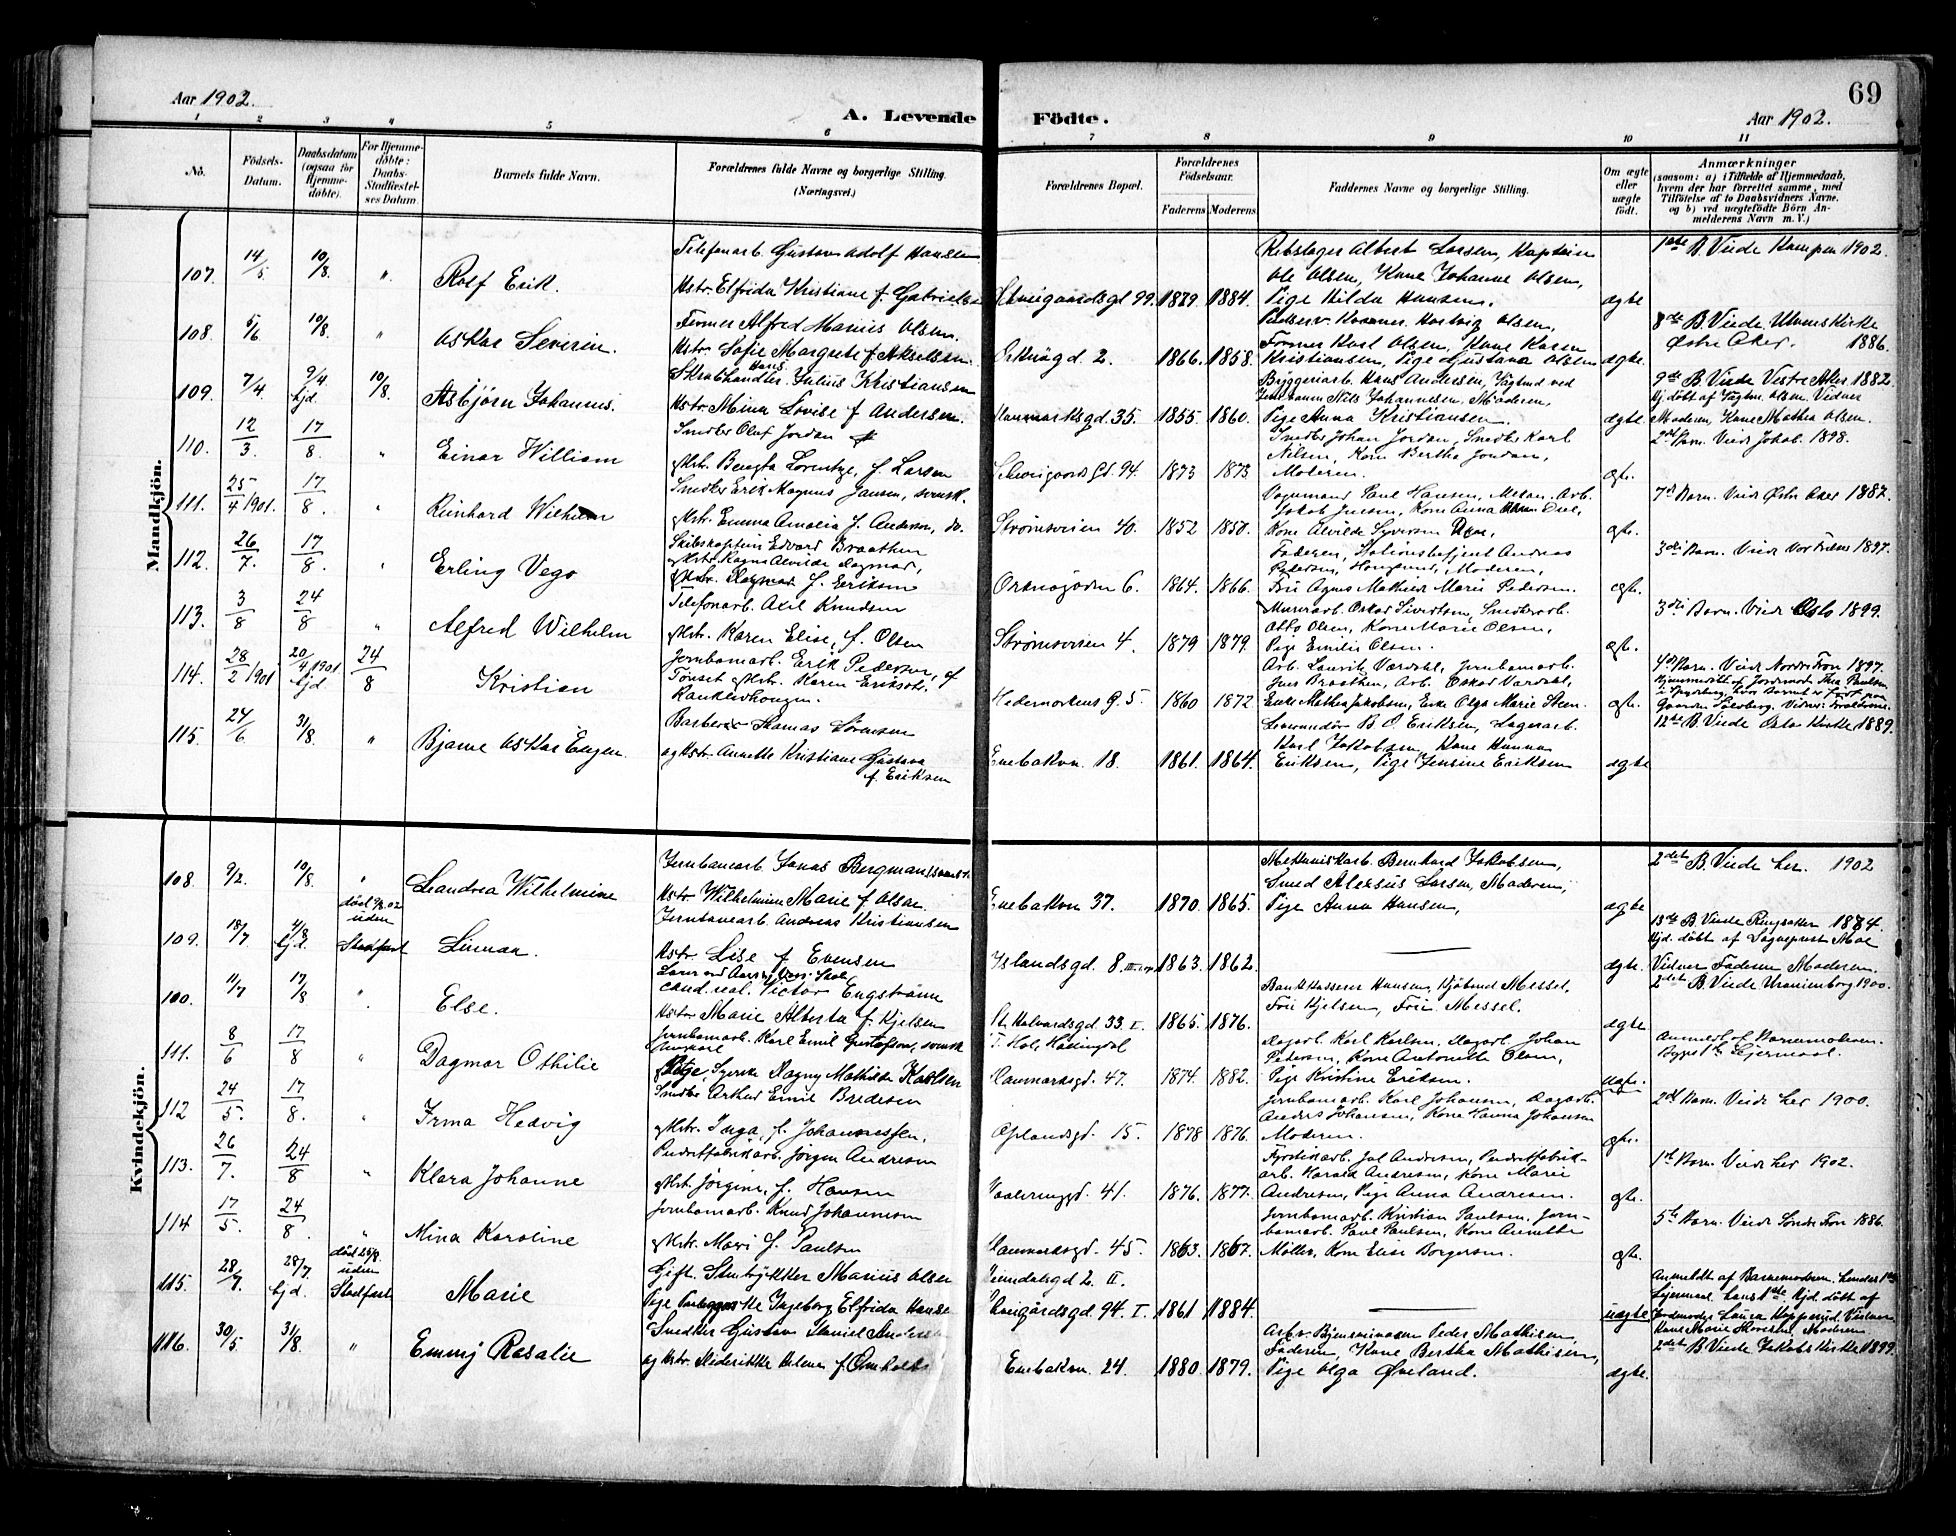 Aar 1902.
A. Levende Födte.
69
Aar 1902.
1 2 3 4 5 6 7 8 9 10 11
No.
Födsels-
Datum.
Daabsdatum
(ogsaa for
Hjemme-
døbte).
For Hjemme-
døbte:
Daabs-
Stadfæstel-
ses Datum.
Barnets fulde Navn.
Forældrenes fulde Navne og borgerlige Stilling.
(Næringsvei.)
Forældrenes Bopæl.
Forældrenes
Födselsaar.
Faderens Moderens
Faddernes Navne og borgerlige Stilling.
Om ægte
eller
uægte
født.
Anmærkninger
(saasom: a) i Tilfælde af Hjemmedaab,
hvem der har forrettet samme, med
Tilföielse af to Daabsvidners Navne,
og b) ved uægtefödte Börn An-
melderens Navn m. V.)
Mandkjön.
107. 14/5 10/8. " Rolf Erik.
Telefonarb. Gustav Adolf Hansen
Hstr. Elfrida Kristiane f. Gabrielsen
99. 1879 1884.
Rebslager Albert Larsen, Kaptein
Ole Olsen, Kone Johanne Olsen,
Pige Hilda Hansen.
ægte
1ste B. Viede Kampen 1902.
108. 5/6. 10/8. " Oskar Severin.
Former Alfred Marius Olsen.
Hstr. Sofie Margrete f. Akselsen
Orknögd. 2. 1866. 1858.
Hartvig Olsen,
Former Karl Olsen, Kone Karen
Kristiansen, Pige Gustava Olsen
ægte.
8de B. Viede
Østre Aker. 1886.
109. 7/4. 9/4 hjd. 10/8. Asbjørn Johannes.
Skrabhandler Hans Julius Kristiansen
Hstr. Mina Lovise f. Andersen.
Danmarksgd. 35. 1855. 1860.
Bryggeriarb. Hans Andersen, Vægtmd ved
Jernbanen Nils Johannesen. Moderen,
Pige Anna Kristiansen.
ægte.
9de B. Viede Vestre Aker 1882.
Hj. døbt af Olsen. Vidner
Moderen, Kone Mathea Olsen.
110. 12/3. 17/8. " Einar William
Snedker Oluf Jordan
og Hstr. Bengta Lorentze, f. Larsen
94. 1873 1873.
Snedker Johan Jordan, Snedker Karl
Nilsen, Kone Bertha Jordan,
Moderen.
ægte.
2det Barn. Viede Jakob. 1898.
111. 25/4 1901. 17/8. " Reinhard Wilhelm
Snedker Erik Magnus Jansen, svensk.
og Hstr. Emma Amalia f. Anderson, do.
Strømsveien 40. 1852 1850.
Vognmand Paul Hansen, Mekan. Arb.
Jakob Jensen, Kone Anna
Kone Alvilde Syversen
ægte.
7de Barn. Viede Østre Aker 1887.
112. 26/7. 17/8. " Erling Vego
Skibskaptein Edvard Braathen
og Hstr. Ragna Alvilde Dagmar,
f. Eriksen
Orknøgaden 6. 1864. 1866.
Faderen, Stationsbetjent Andreas
Pedersen, Hougsund, Moderen,
Fru Agnes Mathilde Marie Pedersen.
ægte.
3die Barn. Viede Vor Frelser 1897.
113. 3/8 24/8 " Alfred Wilhelm
Telefonarb. Axel Knudsen
og Hstr. Karen Elise, f. Olsen
Strømsveien 4. 1879 1879.
Murerarb. Oskar Sivertsen, Snedkerarb.
Otto Olsen, Kone Marie Olsen,
Pige Emilie Olsen.
ægte.
3die Barn. Viede Oslo 1899.
114. 28/2 1901 20/4 1901 hjd. 24/8 Kristian
Jernbanearb. Erik Pedersen, af
Tönset og Hstr. Karen Eriksdtr.
Ranklevhougen.
5 1860 1872
Arb. Laurits Værdahl, Jernbanearb.
Jens Braathen, Arb. Oskar Værdahl,
Enke Mathea Jakobsen, Enke Olga Marie Steen
ægte.
4de Barn. Viede Nordre Fron 1897.
Hjemmedöbt af Jordemoder Thea Paulsen
115. 24/6. 31/8. " Bjarne Oskar Eugen
Barberer Thomas Sörensen
og Hstr. Annette Kristiane Gustava
f. Eriksen
Enebakvn. 18. 1861. 1864.
B. O. Eriksen, Lagerarb.
Karl Jakobsen, Kone Hanna
Eriksen, Pige Jensine Eriksen
ægte
12te B. Viede Oslo Kirke 1889.
Kvindekjön.
108. 9/2. 10/8. " Leandrea Wilhelmine
Jernbanearb. Jonas Bergman (svensk.
Hstr. Wilhelmine Marie f. Olsen.
Enebakvn 37. 1870. 1865.
Mekaniskarb. Bernhard Jakobsen,
Smed Aleksius Larsen, Moderen,
Pige Anna Hansen,
ægte
2det B. Viede her. 1902
109. 18/7 4/8 hjd. død 9/8.02 uden Stadfæst Linnea.
Jernbanearb. Andreas Kristiansen
Hstr. Lise f. Evensen
Islandsgd. 8. 1863. 1862.
—
ægte.
13de B. Viede Ringsaker 1884.
Hjd. døbt af Sogneprest Moe
Vidner Faderen Moderen.
100. 11/7 17/8 " Else.
Lærer ved Aars og Voss Skole
cand. real. Victor Engströme
Hstr. Marie Alberta f. Kjelsen
St. Halvardsgd. 33. I. 1865. 1876.
Bankkasserer Hansen, Kjøbmd Messel,
Fru Kjelsen, Fru Messel.
ægte
2det B. Viede Uranienborg 1900.
111. 8/6 17/8 " Dagmar Othilie
Jernbanearb. Karl Emil Gustafson, svensk
Ungkarl
og Pige, Syerske Dagny Mathilde Karlsen
T. Hol, Hallingdal
Danmarksgd. 47. 1874. 1882.
Dagarb. Karl Karlsen, Dagarb. Johan
Petersen, Kone Antonette Olsen,
Pige Kristine Eriksen.
uægte.
Anmeldt af Barnemoderen.
Begges 1ste Lejermaal.
112 24/5. 17/8. " Irma Hedvig
Snedker Arthur Emil Bredesen
og Hstr. Inga, f. Johannessen.
Oplandsgd. 15. 1878 1876.
Jernbanearb. Karl Johansen, Dagarb.
Anders Johansen, Kone Hanna Johansen
Moderen.
ægte.
2det Barn. Viede her 1900.
113. 26/7. 24/8 " Klara Johanne
Pudretfabrikarb. Jørgen Andresen
og Hstr. Jörgine, f. Hansen
Vaalerenggd. 41. 1876. 1877.
Fyrstikarb. Joh Andresen, Pudretfabrik-
arb. Harald Andresen, Kone Marie
Andresen, Pige Anna Andresen.
ægte.
1ste Barn. Viede her 1902.
114 17/5. 24/8. " Mina Karoline
Jernbanearb. Knud Johannesen
og Hstr. Mari f. Paulsen
Danmarksgd. 45. 1863. 1867.
Jernbanearb. Kristian Paulsen, Jern-
banearb. Paul Paulsen, Kone Annette
Möller, Kone Elise Borgersen.
ægte.
5te Barn. Viede Söndre Fron 1886.
115. 28/7. 28/7. hjd. død 25/8. uden Stadfæst Marie
Gift. Stenhykker Marius Olsen
Pige Ingeborg Elfrida Hansen
2. II.
94. I. 1861 1884.
—
uægte
Anmeldt af Barnemoderen. hendes 1ste
Lejermaal hans 1ste. Hjd. døbt af
Jordmoder Laura
Moderen
116. 30/5. 31/8. " Emmy Rosalie
Snedker Gustav Daniel
og Hstr. Helene f.
Enebakvn. 24. 1880. 1879.
Peder Mathisen,
Faderen, Kone Bertha Mathisen,
Pige Olga Øveland.
ægte.
2det B. Viede Jakobs Kirke 1899.